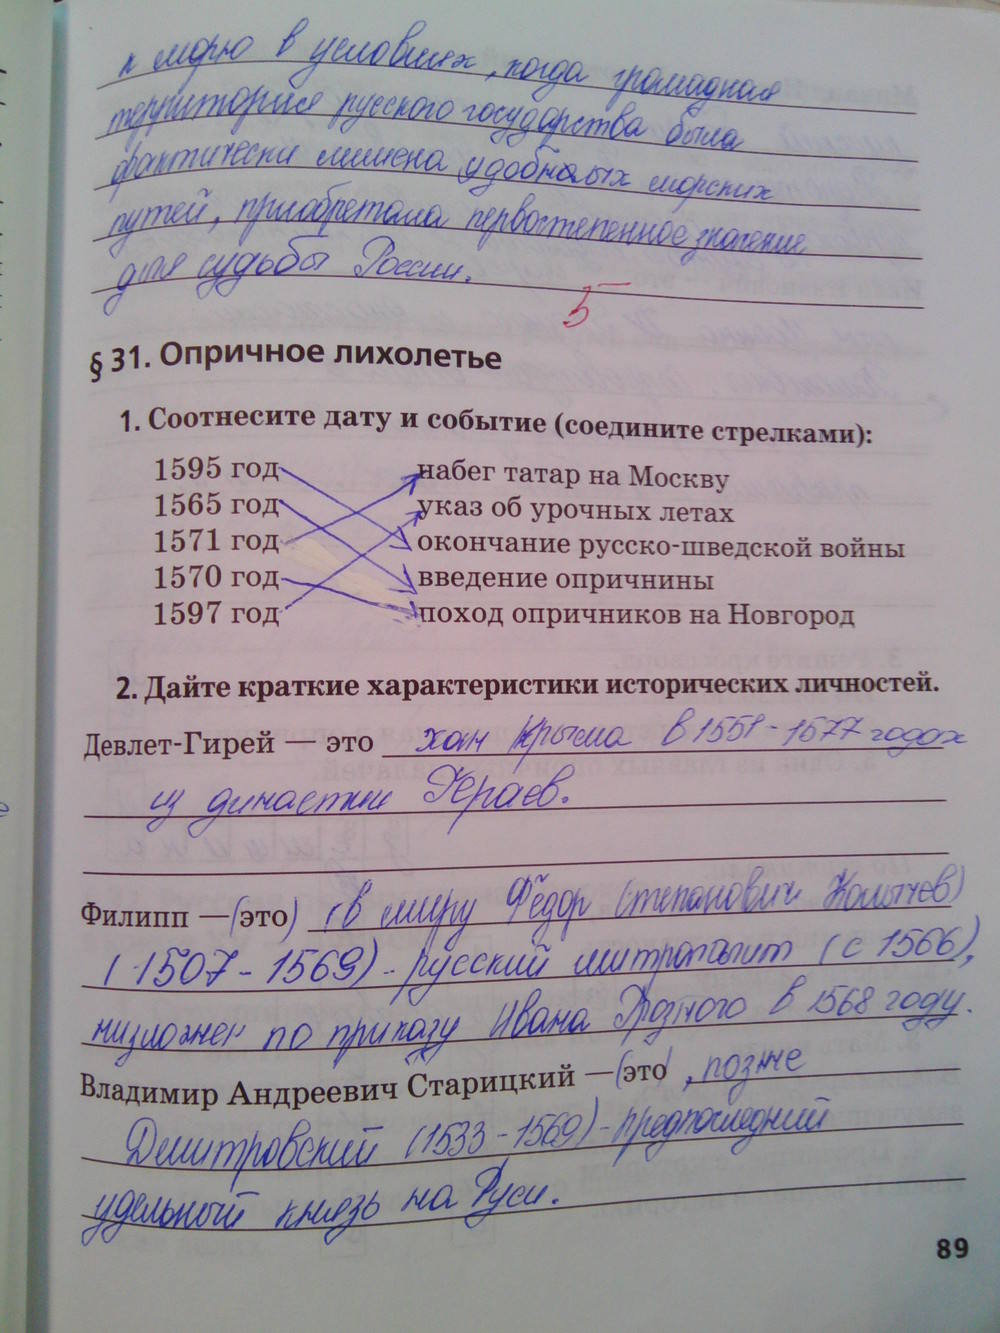 к морю в условиях, когда громадная
территория русского государства была
фактически лишена удобных морских
путей, приобретала первостепенное значение
для судьбы России.
5-
§ 31. Опричное лихолетье
1. Соотнесите дату и событие (соедините стрелками):
1595 год набег татар на Москву
1565 год указ об урочных летах
1571 год окончание русско-шведской войны
1570 год введение опричнины
1597 год поход опричников на Новгород
2. Дайте краткие характеристики исторических личностей.
Девлет-Гирей — это хан Крыма в 1551-1577 годах
из династии Гераев.
Филипп — (это) (в миру Фёдор Степанович Колычев)
(1507-1569) - русский митрополит (с 1566),
низложен по приказу Ивана Грозного в 1568 году.
Владимир Андреевич Старицкий — (это), позже
Дмитровский (1533-1569) - предпоследний
удельный князь на Руси.
89